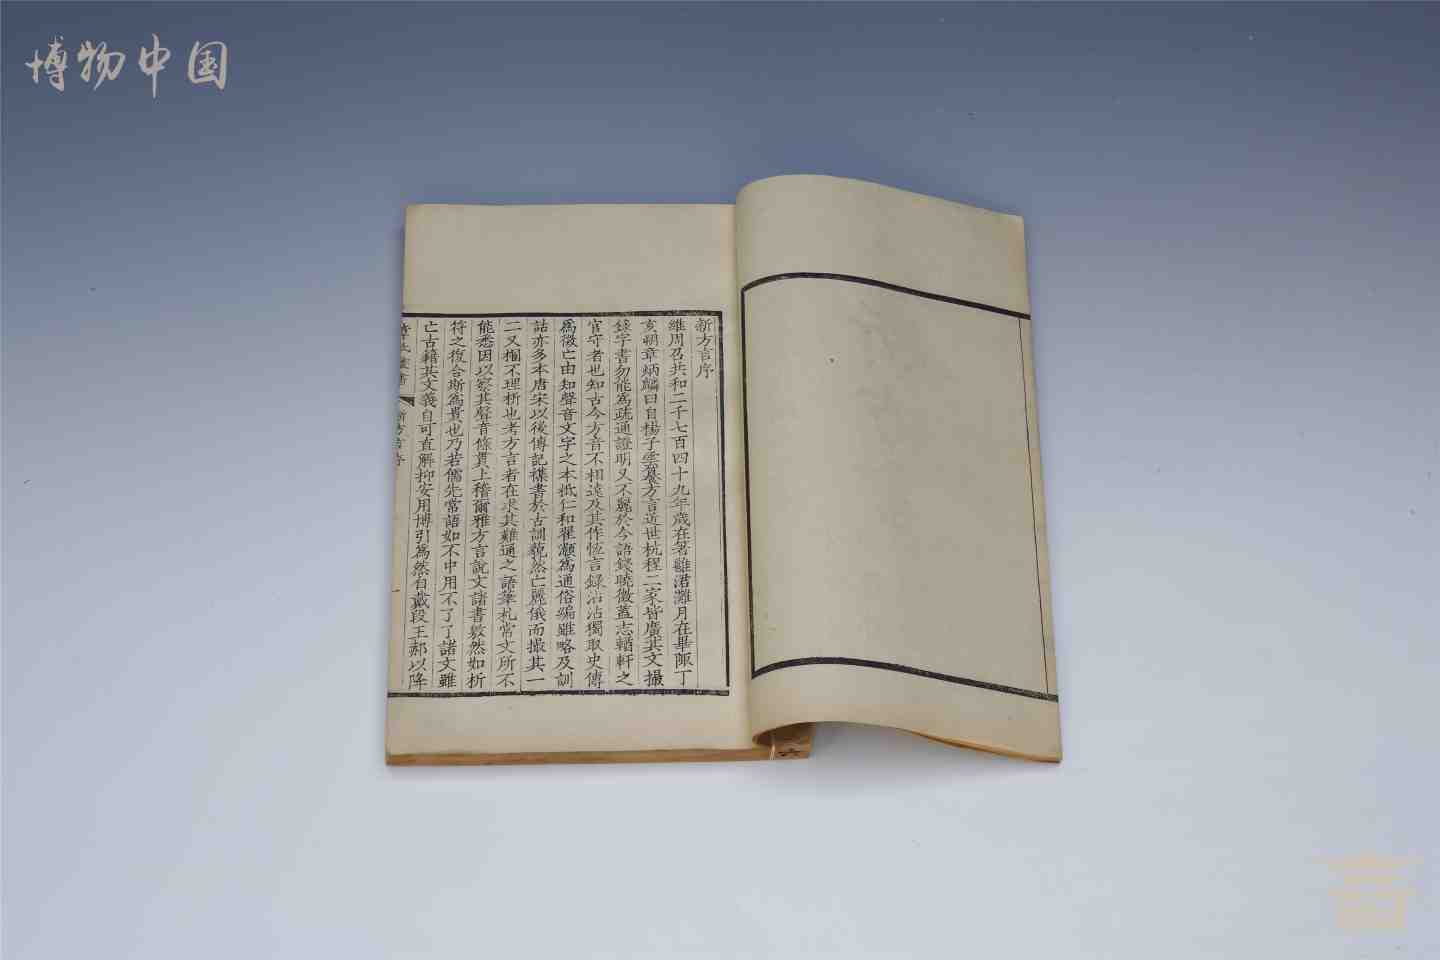 博物中国
新方言序
維周召共和二千七百四十九年歲在箸雝涒灘月在畢陬丁
亥朔章炳麟曰自楊子雲纂方言近世杭程二家皆廣其文撮
錄字書勿能為疏通證明又不麗於今語錢曉徵蓋志輶軒之
官守者也知古今方音不相遠及其作恆言錄沾沾獨取史傳
為徵亡由知聲音文字之本柢仁和翟灝為通俗編雖略及訓
詁亦多本唐宋以後傳記襍書於古訓藐然亡麗俄而撮其一
二又㨡不理析也考方言者在求其難通之語筆札常文所不
能悉因以察其聲音條貫上稽爾雅方言說文諸書敫然如析
符之復合斯為貴也乃若儒先常語如不中用不了了諾文雖
亡古籍其文義自可直解抑安用博引為然自戴段王郝以降
章氏叢書
新方言序
一
六